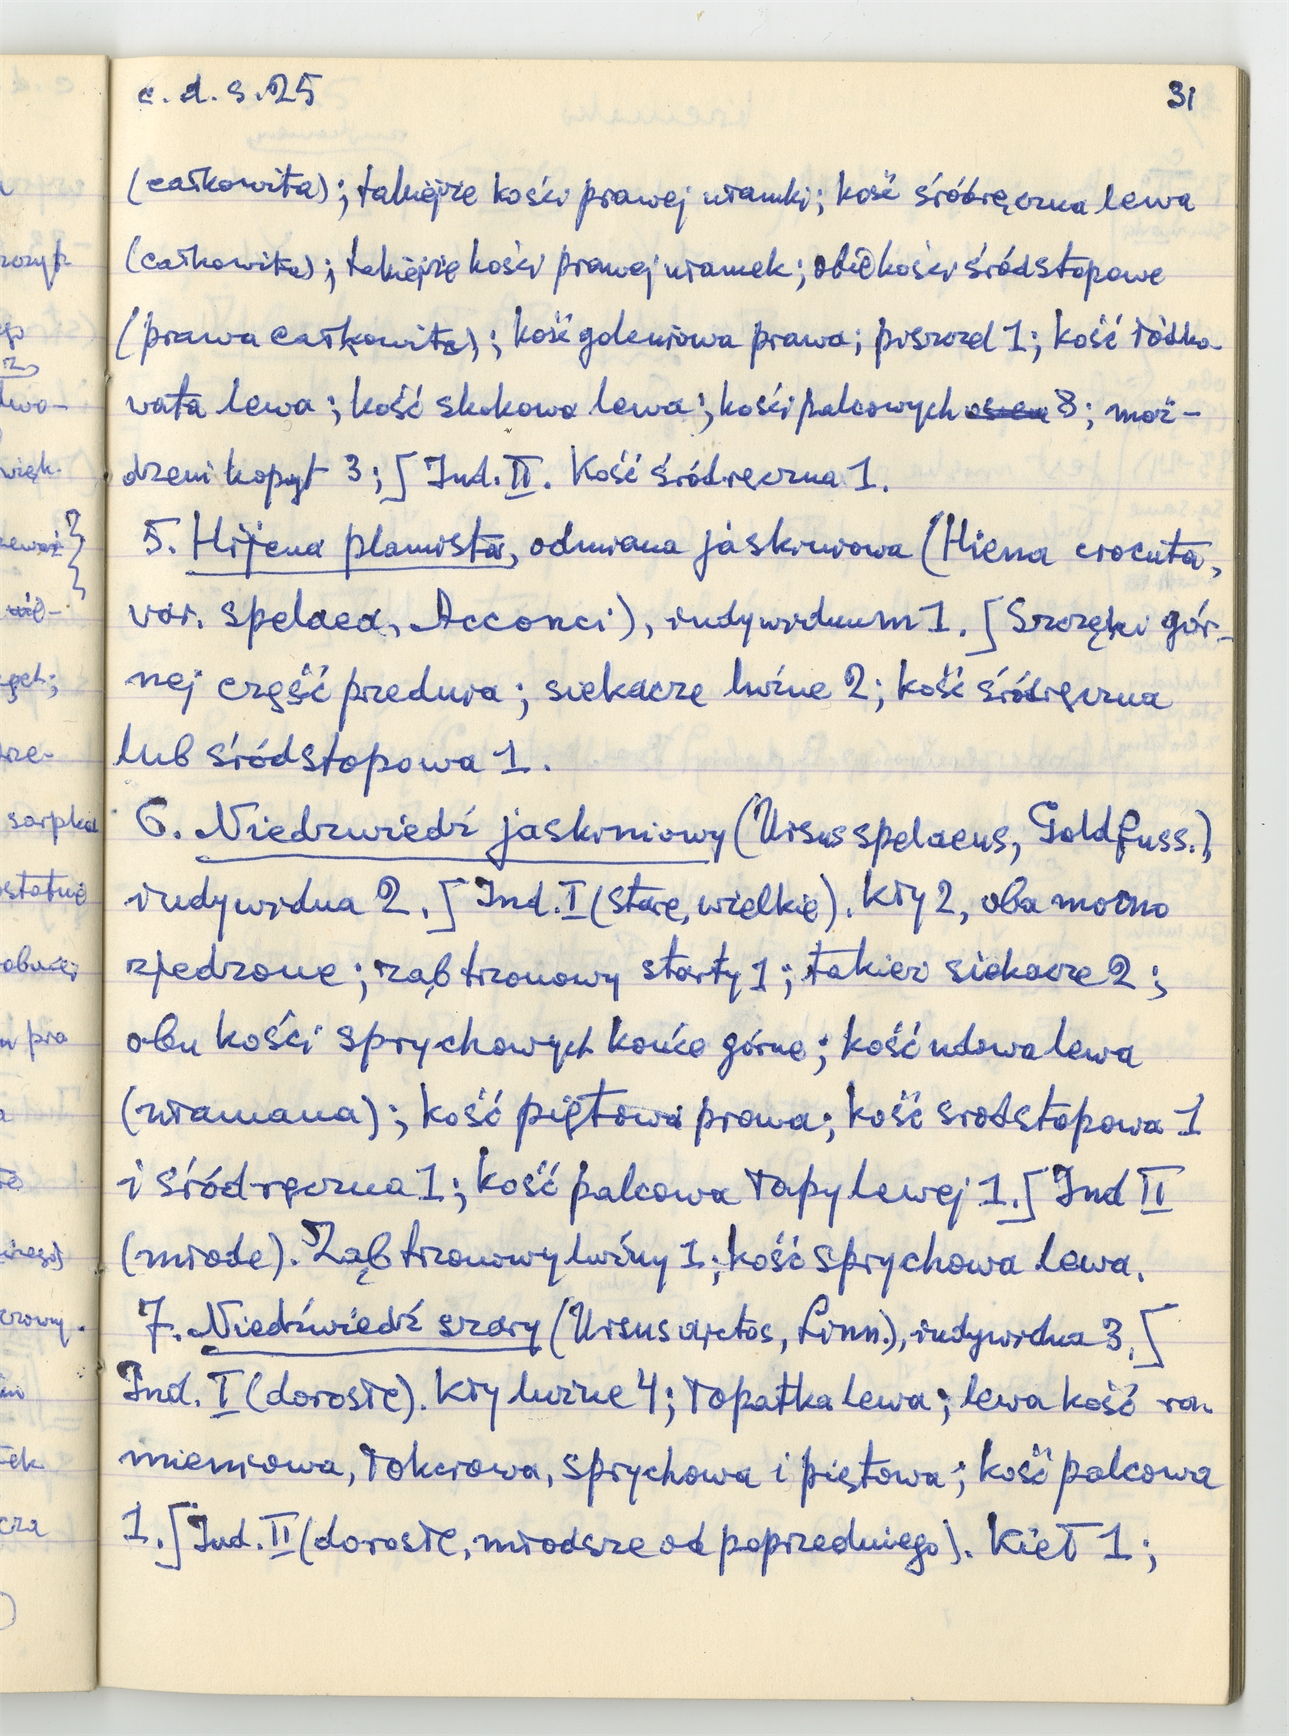 c. d. s. 25
31
(całkowita); takiejże kości prawej ułamki; kość śródręczna lewa
(całkowita); takiejże kości prawej ułamek; obie kości śródstopowe
(prawa całkowita); kość goleniowa prawa; piszczel 1; kość łódko-
wata lewa; kość skokowa lewa; kości palcowych 8; moż-
dzeni kopyt 3; ] Ind. II. Kość śródręczna 1.
5. Hijena plamista, odmiana jaskiniowa (Hiena crocuta,
var. spelaea, Acconci), indywiduum 1. ] Szczęki gór-
nej część przednia; siekacze luźne 2; kość śródręczna
lub śródstopowa 1.
6. Niedzwiedź jaskiniowy (Ursus spelaeus, Goldfuss.),
indywidua 2. ] Ind. I (stare, wielkie). Kły 2, oba mocno
zjedzone; ząb trzonowy starty 1; takież siekacze 2;
obu kości sprychowych końce górne; kość udowa lewa
(ułamana); kość piętowa prawa; kość srodstopowa 1
i śródręczna 1; kość palcowa łapy lewej 1. ] Ind II
(młode). Ząb trzonowy luźny 1; kość sprychowa lewa.
7. Niedźwiedź szary (Ursus arctos, Linn.), indywidua 3. ]
Ind. I (dorosłe). Kły luźne 4; łopatka lewa; lewa kość ra-
mieniowa, łokciowa, sprychowa i piętowa; kość palcowa
1. ] Ind. II (dorosłe, młodsze od poprzedniego). Kieł 1;